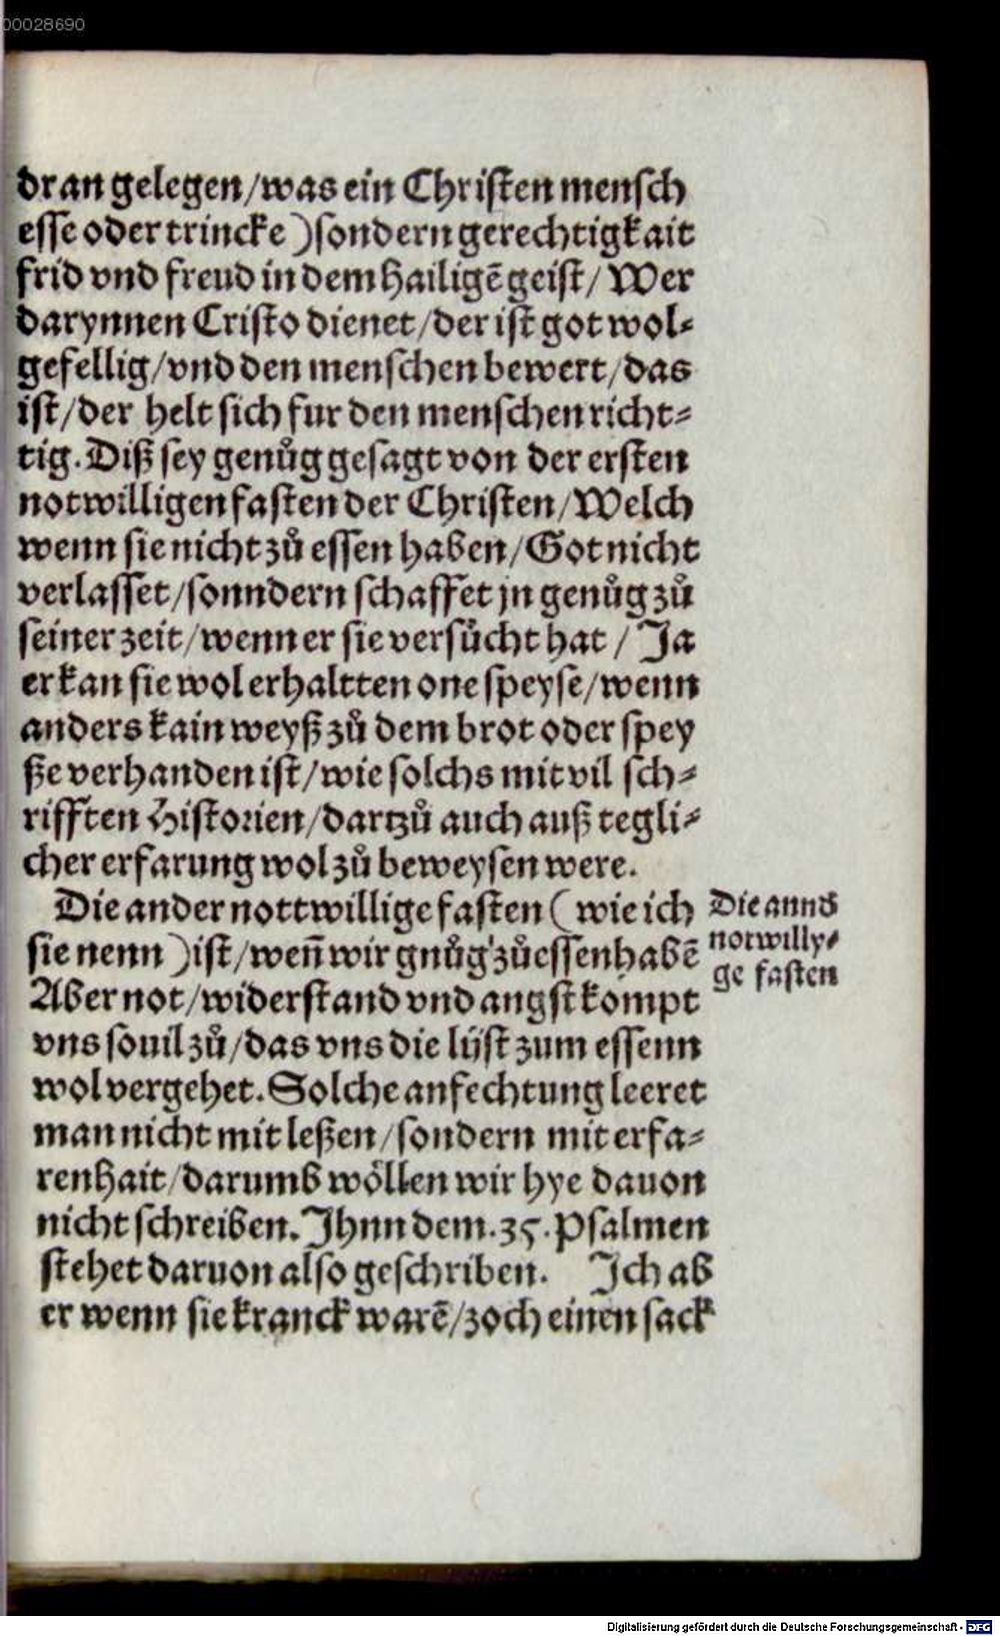 00028690
dran gelegen/was ein Christen mensch
esse oder trincke) sondern gerechtigkait
frid vnd freud in dem hailigē geist/ Wer
darynnen Cristo dienet/der ist got wol-
gefellig/vnd den menschen bewert/das
ist/der helt sich fur den menschen richt-
tig. Diß sey genůg gesagt von der ersten
notwilligen fasten der Christen/Welch
wenn sie nicht zů essen haben/Got nicht
verlasset/sonndern schaffet jn genůg zů
seiner zeit/wenn er sie versůcht hat / Ja
er kan sie wol erhaltten one speyse/wenn
anders kain weyß zů dem brot oder spey
ße verhanden ist/wie solchs mit vil sch-
rifften Historien/dartzů auch auß tegli-
cher erfarung wol zů beweysen were.
Die ander nottwillige fasten (wie ich
sie nenn) ist/weñ wir gnůg zů essen habē
Aber not/widerstand vnd angst kompt
vns souil zů/das vns die lüst zum essenn
wol vergehet. Solche anfechtung leeret
man nicht mit leßen/sondern mit erfa-
renhait/darumb wöllen wir hye dauon
nicht schreiben. Jhnn dem .35. Psalmen
stehet daruon also geschriben. Ich ab
er wenn sie kranck warē/zoch einen sack
Die annd
notwilly-
ge fasten
Digitalisierung gefördert durch die Deutsche Forschungsgemeinschaft - DFG